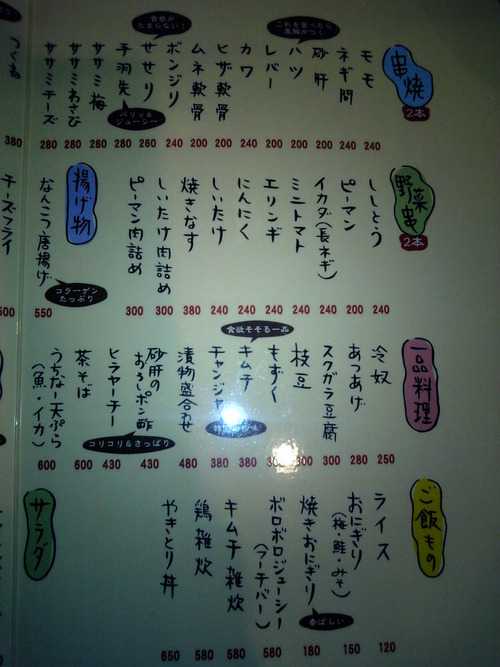 串焼
2本
モモ 240
ネギ間 240
砂肝 200
ハツ 200
これを食べたら
レバー 200
カワ 200
ヒザ軟骨 200
ムネ軟骨 200
ボンジリ 240
せせり 260
食感が
たまらない！
手羽先 280
パリッ&
ジューシー
ササミ梅 280
ササミわさび 280
ササミチーズ 280
つくね 380
野菜串
2本
ししとう 240
ピーマン 200
イカダ(長ネギ) 240
ミニトマト 240
エリンギ 240
にんにく 240
しいたけ 240
焼きなす 380
しいたけ肉詰め 300
ピーマン肉詰め 300
揚げ物
なんこつ唐揚げ 550
コラーゲン
たっぷり
チーズフライ 500
一品料理
冷奴 250
あつあげ 280
スクガラス豆腐 300
枝豆 300
もずく
キムチ 380
食欲そそる一品
チャンジャ 380
漬物盛合わせ 480
砂肝の
おろしポン酢 430
コリコリ&さっぱり
ヒラヤーチー 430
茶そば 600
うちなー天ぷら
(魚・イカ) 600
ご飯もの
ライス 120
おにぎり
(梅・鮭・みそ) 150
焼きおにぎり 180
香ばしい
ボロボロジューシー
(フーチバー) 580
キムチ雑炊 580
鶏雑炊 580
やきとり丼 650
サラダ